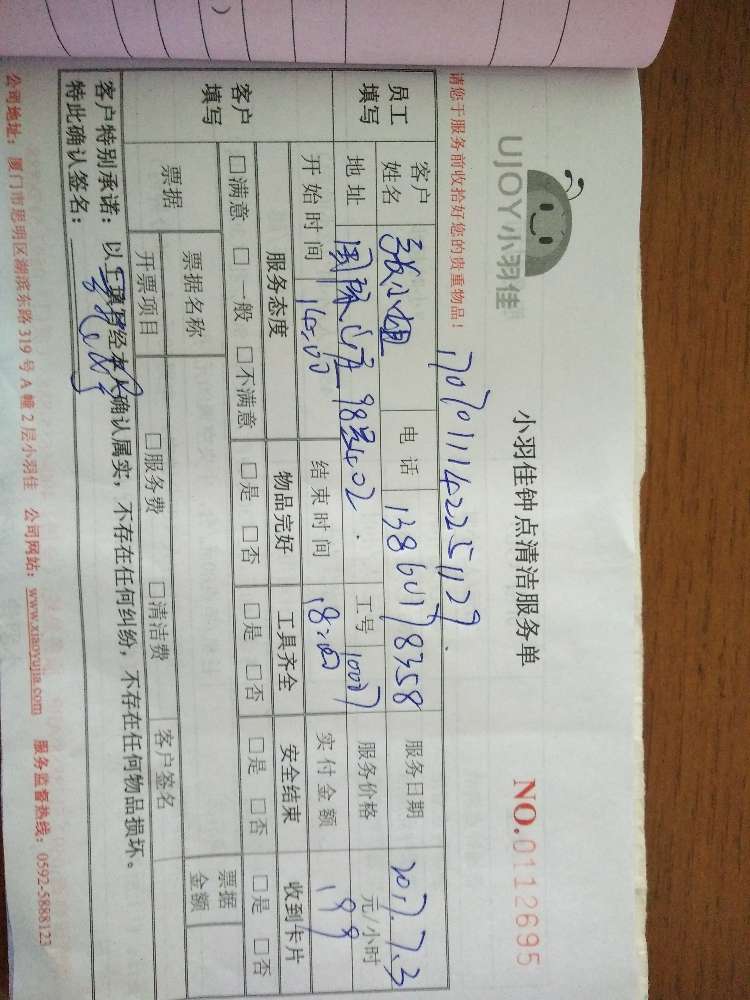 UJOY小羽佳
小羽佳钟点清洁服务单
NO.0112695
请您于服务前收拾好您的贵重物品！
员工填写
客户姓名
张小姐
电话
服务日期
2017.7.3
地址
98号402
工号
服务价格
元/小时
开始时间
14:00
结束时间
18:00
实付金额
199
客户填写
服务态度
物品完好
工具齐全
安全结束
收到卡片
□满意 □一般 □不满意
□是 □否
□是 □否
□是 □否
□是 □否
票据
票据名称
票据金额
开票项目
□服务费
□清洁费
客户签名
客户特别承诺：以上填写经本人确认属实，不存在任何纠纷，不存在任何物品损坏。
特此确认签名：
公司地址：厦门市思明区湖滨东路319号A幢2层小羽佳 公司网站：www.xiaoyujia.com 服务监督热线：0592-5888123